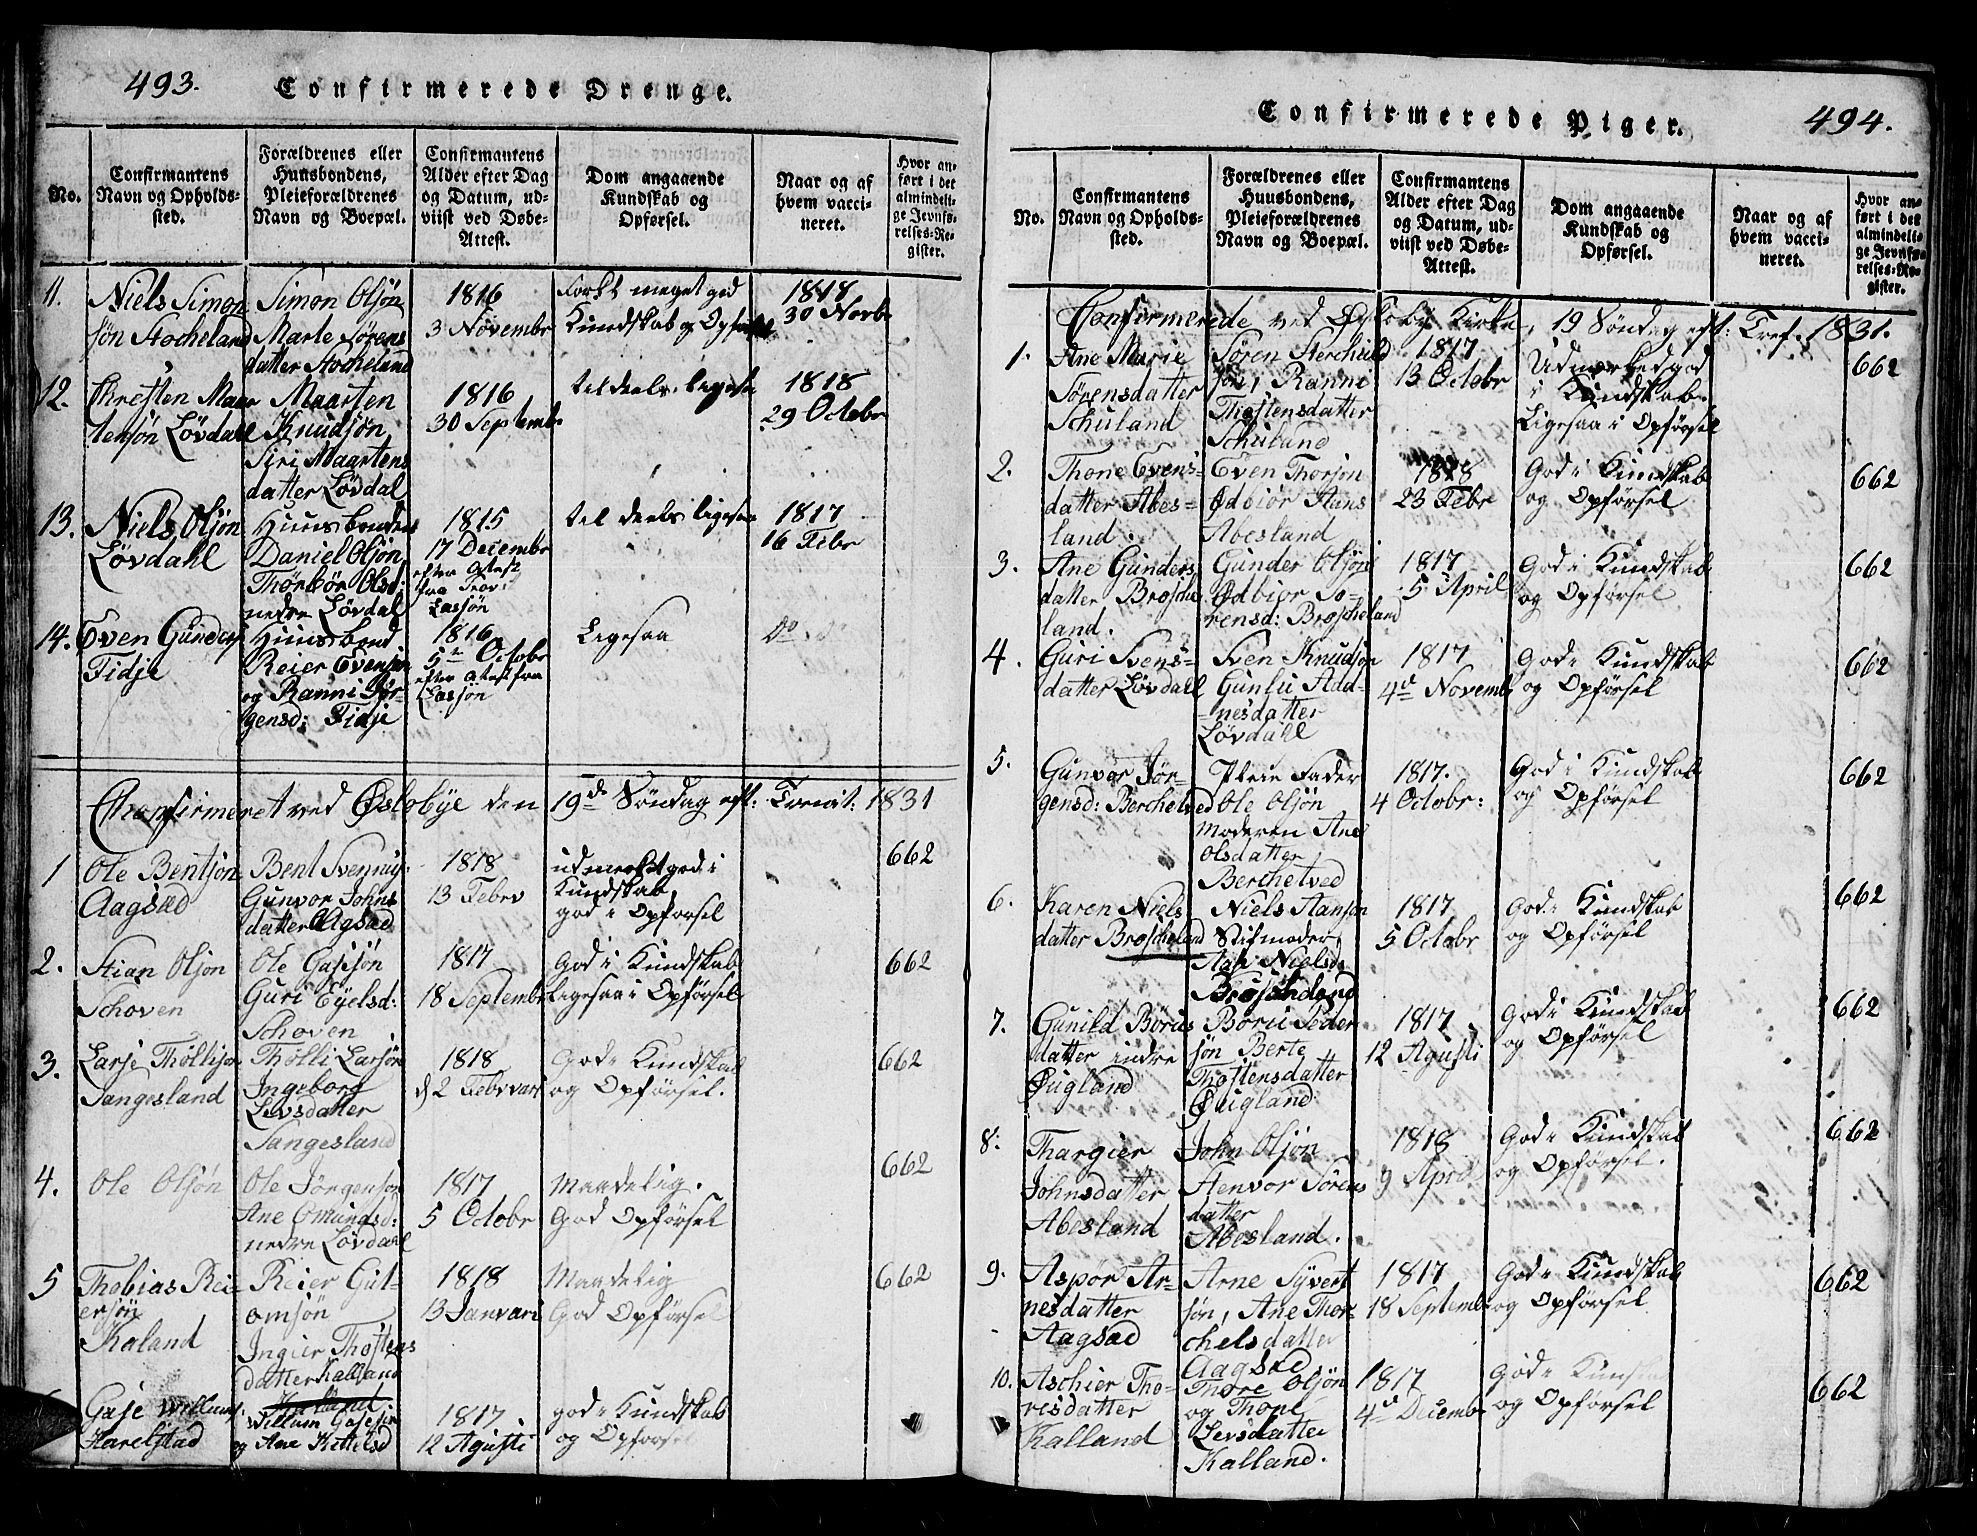 493.
Confirmerede Drenge.
No.
Confirmantens
Navn og Opholds-
sted.
Forældrenes eller
Huusbondens,
Pleieforældrenes
Navn og Boepæl.
Confirmantens
Alder efter Dag
og Datum, ud-
viist ved Døbe-
Attest.
Dom angaaende
Kundskab og
Opførsel.
Naar og af
hvem vacci-
neret.
Hvor an-
ført i det
almindeli-
ge Jevnfø-
relses-Re-
gister.
11.
Niels Simon
sjön Stocheland
Simon Olsjön
Marte Sørens
datter Stocheland
1816
3 Novembr
meget god
Kundskab og Opførsel
1817
30 Novbr
12.
Chresten Maar
tensjön Lövdahl
Maarten
Knudsjön
Siri Maartens
datter Lövdal
1816
30 Septembr
tildeels ligesaa
1818
29 Octobr
13.
Niels Olsjön
Lövdahl
Huusbonden
Daniel Olsjön
Thorbör Olsd:
nedre Lövdal
1815
17 Decembr
efter Atest
fra Prov:
Lassjön
til deels ligesaa
1817
16 Febr
14.
Even Gunders
Fidje
Huusbond
Reier Evensjön
og Ranni Jør-
gensd: Fidje
1816
5te Octobr
efter atest fra
Lassjön
Ligesaa
do do
Chonfirmeret ved Øslobye den 19de Söndag eft: Trenit: 1831
1
Ole Bentsjön
Aagsæd
Bent Svennuy
Gunvor Johns
datter Aagsæd
1818
13 Febrv
udmerket god i
Kundskab,
god i Opførsel
662
2.
Stian Olsjön
Schoven
Ole Gasesjön
Guri Eyelsd:
Schoven
1817
18 Septembr
God i Kundskab
Ligesaa i Opförsel
662
3.
Larse Thollisjön
Sangesland
Tholli Larsjön
Ingeborg
Levsdatter
Sangesland
1818
d 2 Febrvari
God i Kundskab
og Opførsel.
662
4.
Ole Olsjön
Ole Jörgensøn
Ane Omundsd:
nedre Lövdahl
1817
5 Octobr
Maadelig.
God Opførsel
662
5
Thobias Rei
ersjön
Kaland
Reier Gut-
omsjön
Ingier Thostens
datter Kalland
1818
13 Janvari
Maadelig
God Opførsel
662
Gase Willums
Harelstad
Kalland
Willum Gasesjön
og Ane Kittelsd
1817
12 Agusti
god i Kundskab
og Opførsel
494.
Confirmerede Piger.
No.
Confirmantens
Navn og Opholds-
sted.
Forældrenes eller
Huusbondens,
Pleieforældrenes
Navn og Boepæl.
Confirmantens
Alder efter Dag
og Datum, ud-
viist ved Døbe-
Attest.
Dom angaaende
Kundskab og
Opførsel.
Naar og af
hvem vacci-
neret.
Hvor an-
ført i det
almindeli-
ge Jevnfø-
relses-Re-
gister.
Confirmerede ved Øsloby Kirke, 19 Söndag eft: Tref. 1831.
1.
Ane Marie
Sörensdatter
Schuland
Sören Sterchuld
sjön, Ranni
Thostensdatter
Schuland
1817
13 Octobr
Udmerket god
i Kundskab.
Ligesaa i Opførsel
662
2.
Thone Evens-
datter Abes-
land
Even Thorsjön
Ødbiör Hans
Abesland
1818
23 Febr
God i Kundskab
og Opførsel
662
3.
Ane Gunders
datter Brosche
land.
Gunder Olsjön
Ødbiør So-
rensd: Broscheland
1817
5 April
God i Kundskab
og Opførsel
662
4.
Guri Svens-
datter Lövdall
Sven Knudsjön
Gunlu Aad-
nesdatter
Lövdahl
1817
4de Novemb
God i Kundskab
og Opførsel
662
5.
Gunvor Jør-
gensd: Berchetved
Pleie Fader
Ole Olsjön
Moderen Ane
Olsdatter
Berchetved
1817.
4 Octobr:
God i Kundskab
og Opførsel
662
6.
Karen Niels
datter Broscheland
Niels Hansjön
Stifmoder
Aase Nielsd.
Broscheland
1817
5 Octobr
God i Kundskab
og Opførsel
662
7.
Gunild Börus
datter indre
Øugland
Boru Peder
sjön Berte
Thostensdatter
Øugland
1817
12 Agusti
God i Kundskab
og Opførsel
662
8.
Thargier
Johnsdatter
Abesland
John Olsjön
Stenvor Sörens
datter
Abesland.
1818
9 April
God i Kundskab
og Opførsel.
662
9.
Aspör Ar-
nesdatter
Aagsæd
Arne Syvert
sjön, Ane Thor-
chelsdatter
Aagsæd
1817
18 Septembr
God i Kundskab
og Opførsel
662
10.
Aschier Tho-
resdatter
Kalland
Thore Olsjön
og Thone
Levsdatter
Kalland.
1817
4de Decembr
God i
og Opførsel
662